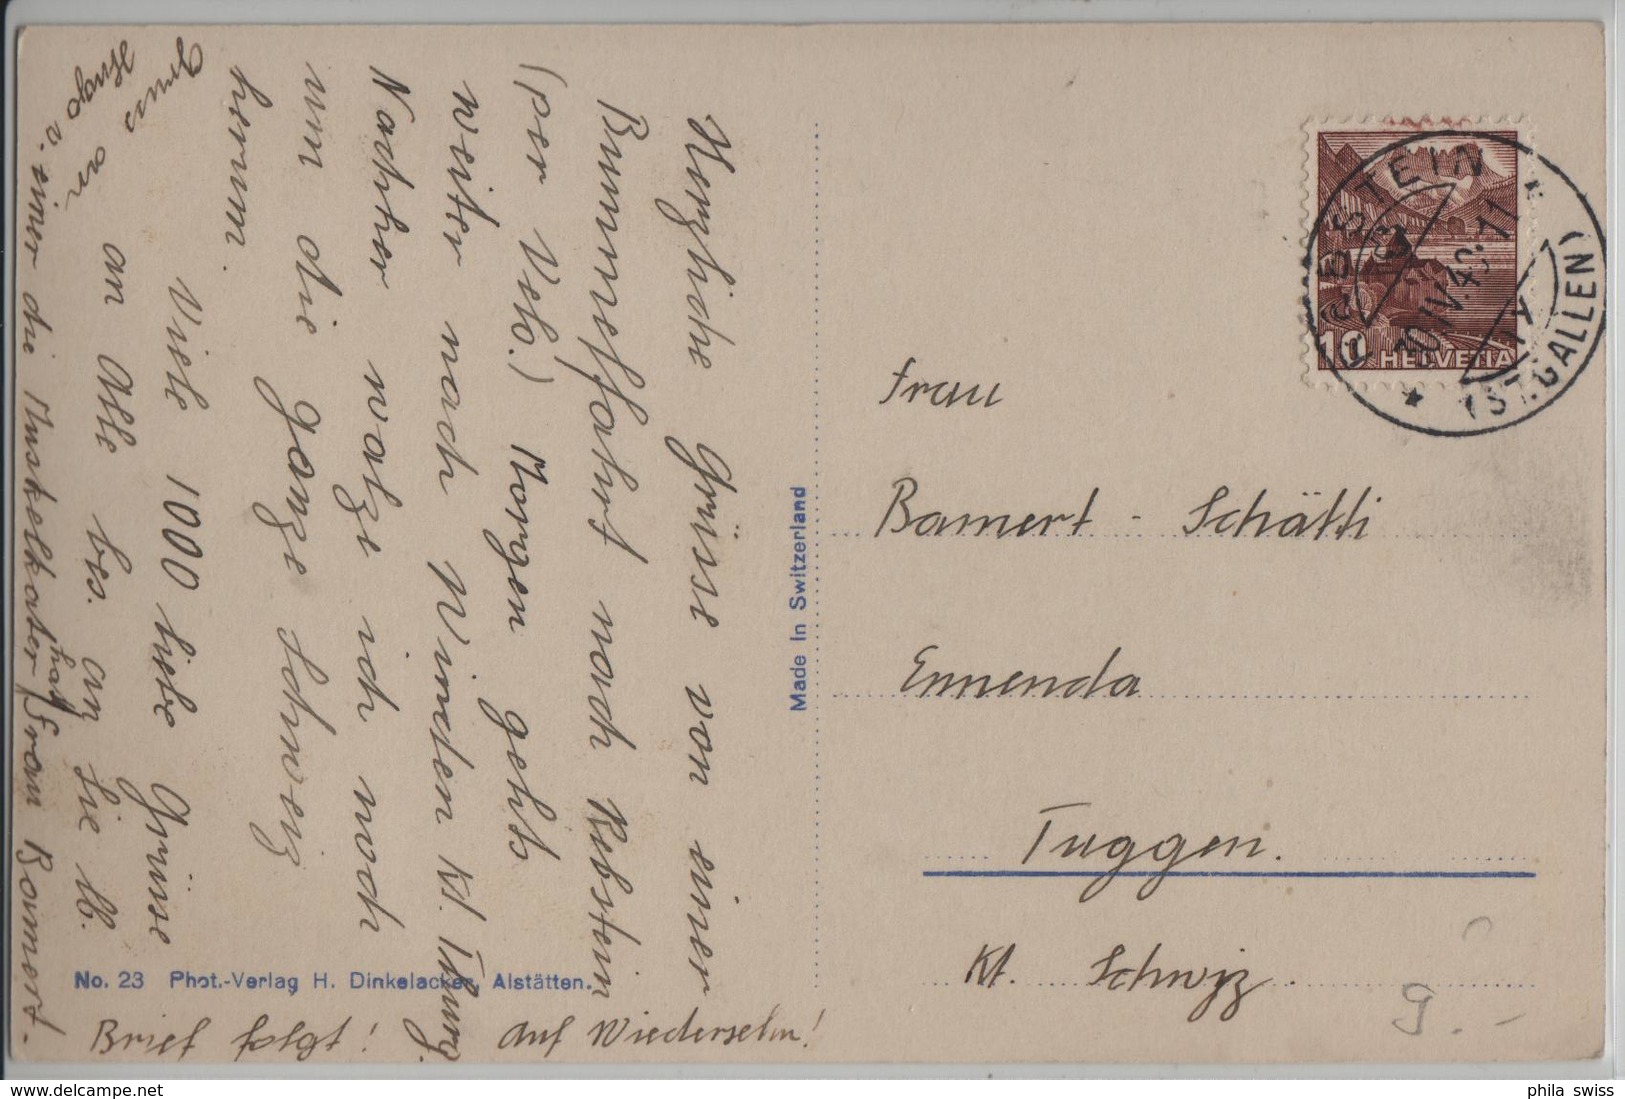 Herzliche Grüsse von einer
Bummelfahrt nach Rebstein
(per Velo.) Morgen gehts
weiter nach Winden Kt. Thurg.
Nachher walze ich noch
um die ganze Schweiz
herum.
Viele 1000 liebe Grüsse
an Alle bes. an Sie lb.
Frau Bamert.
Gruss an
Hugo
v. einer die Muskelkater hat
Brief folgt! Auf Wiedersehn!
No. 23 Phot.-Verlag H. Dinkelacker, Alstätten.
Made In Switzerland
10 HELVETIA
REBSTEIN
10.IV.43.11
(ST.GALLEN)
Frau
Bamert-Schätti
Ennenda
Tuggen.
Kt. Schwyz.
9.-
phila swiss